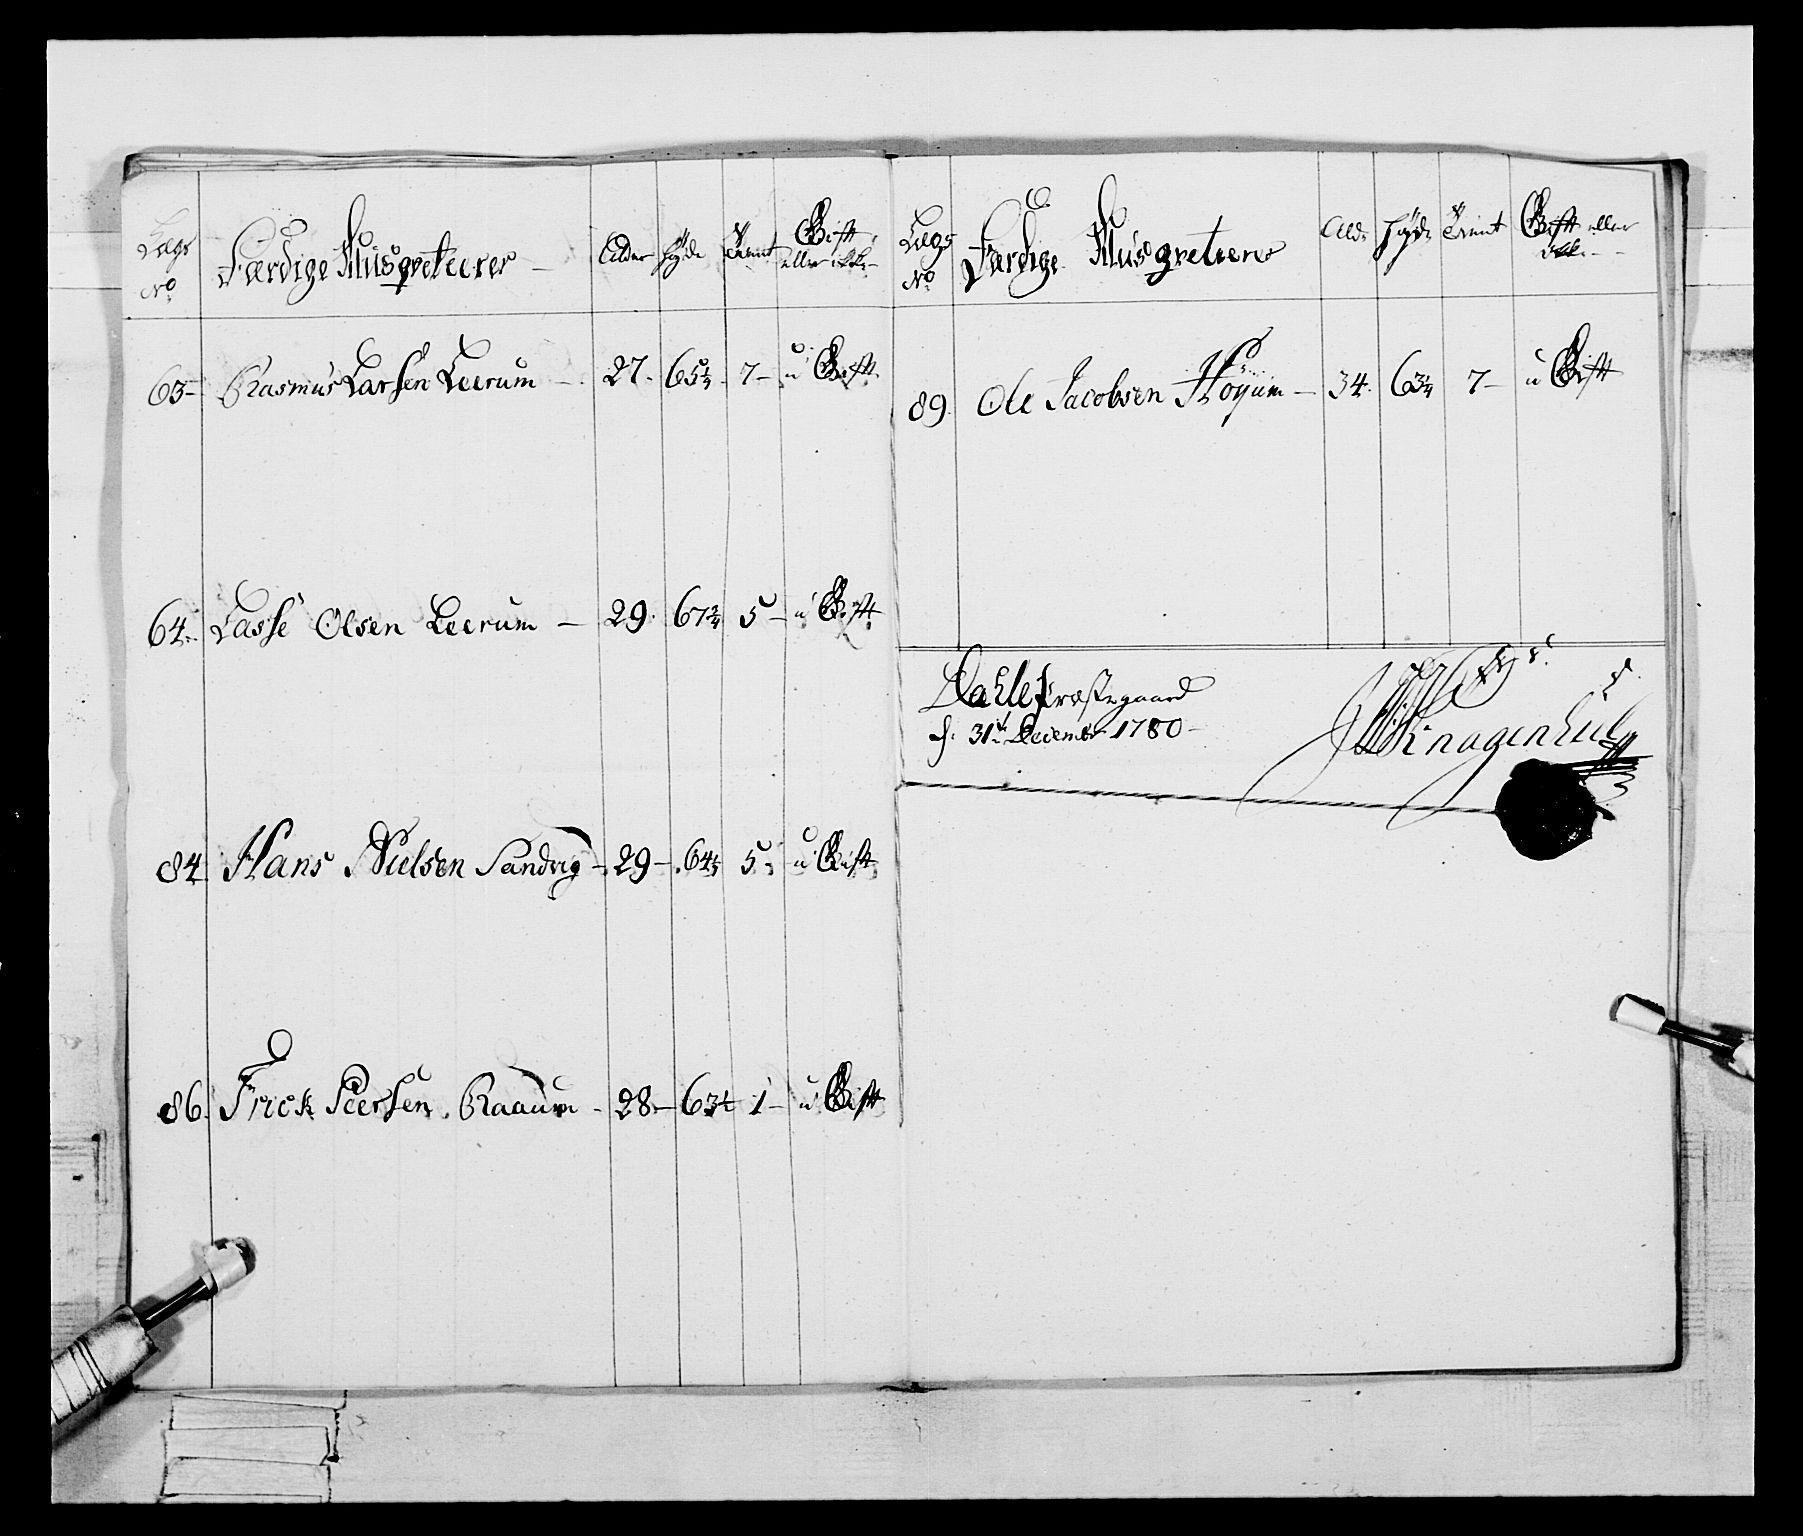 Lægs No Færdige Musqveteerer Alder Høyde Tient Gift eller ikke
63 Rasmus Larsen Leerum 27 65 1/4 7 u Gift
64 Lasse Olsen Leerum 29 67 3/4 5 u Gift
84 Hans Nielsen Sandvig 29 64 5 u Gift
86 Frick Peersen Raaum 28 63 1 u Gift
Lægs No Færdige Musqveteerer Alder Høyde Tient Gift eller ikke
89 Ole Jacobsen Høyum 34 63 7 u Gift
Dahle Præstegaard
d. 31te December 1780
Knagenhielm